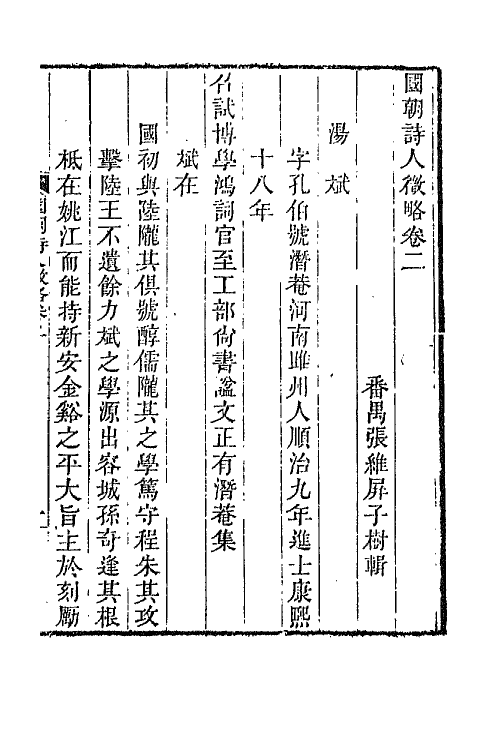 國朝詩人徵略卷二
番禺張維屏子樹輯
湯斌
字孔伯號潛菴河南睢州人順治九年進士康熙
十八年
召試博學鴻詞官至工部尙書諡文正有潛菴集
斌在
國初與陸隴其俱號醇儒隴其之學篤守程朱其攻
擊陸王不遺餘力斌之學源出容城孫奇逢其根
柢在姚江而能持新安金谿之平大旨主於刻厲